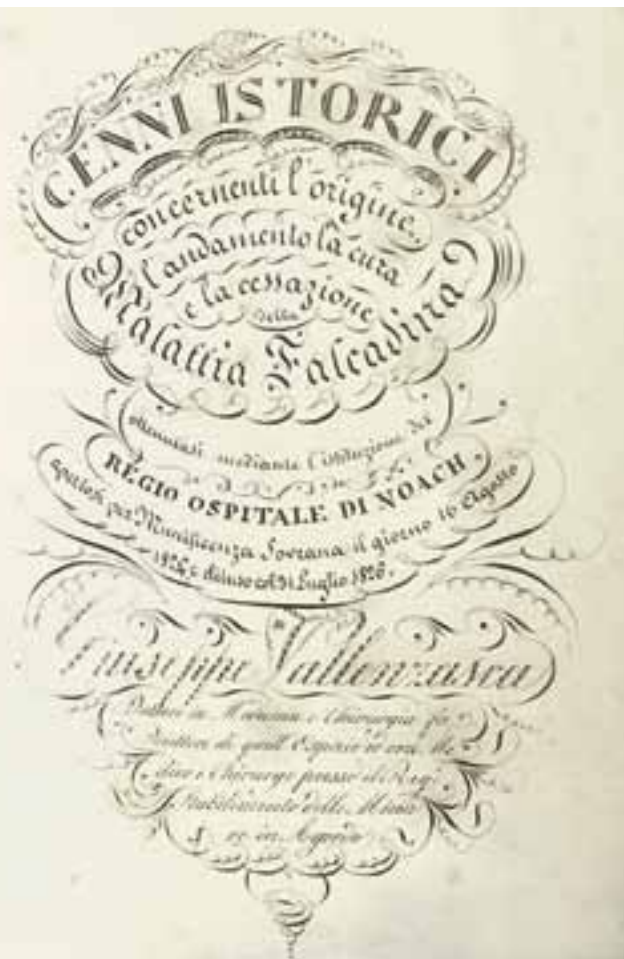 CENNI ISTORICI
concernenti l'origine,
l'andamento la cura
e la cessazione
della
Malattia Falcadina
ottenutasi mediante l'istituzione del
REGIO OSPITALE DI NOACH
apertosi per Munificenza Sovrana il giorno 16 Agosto
e chiuso col 31 Luglio 1826.
Giuseppe Vallenzasca
Dottore in Medicina e Chirurgia
di quell'Ospizio ed ora Me
dico e Chirurgo presso il Regio
Stabilimento delle Minie
re in Agordo